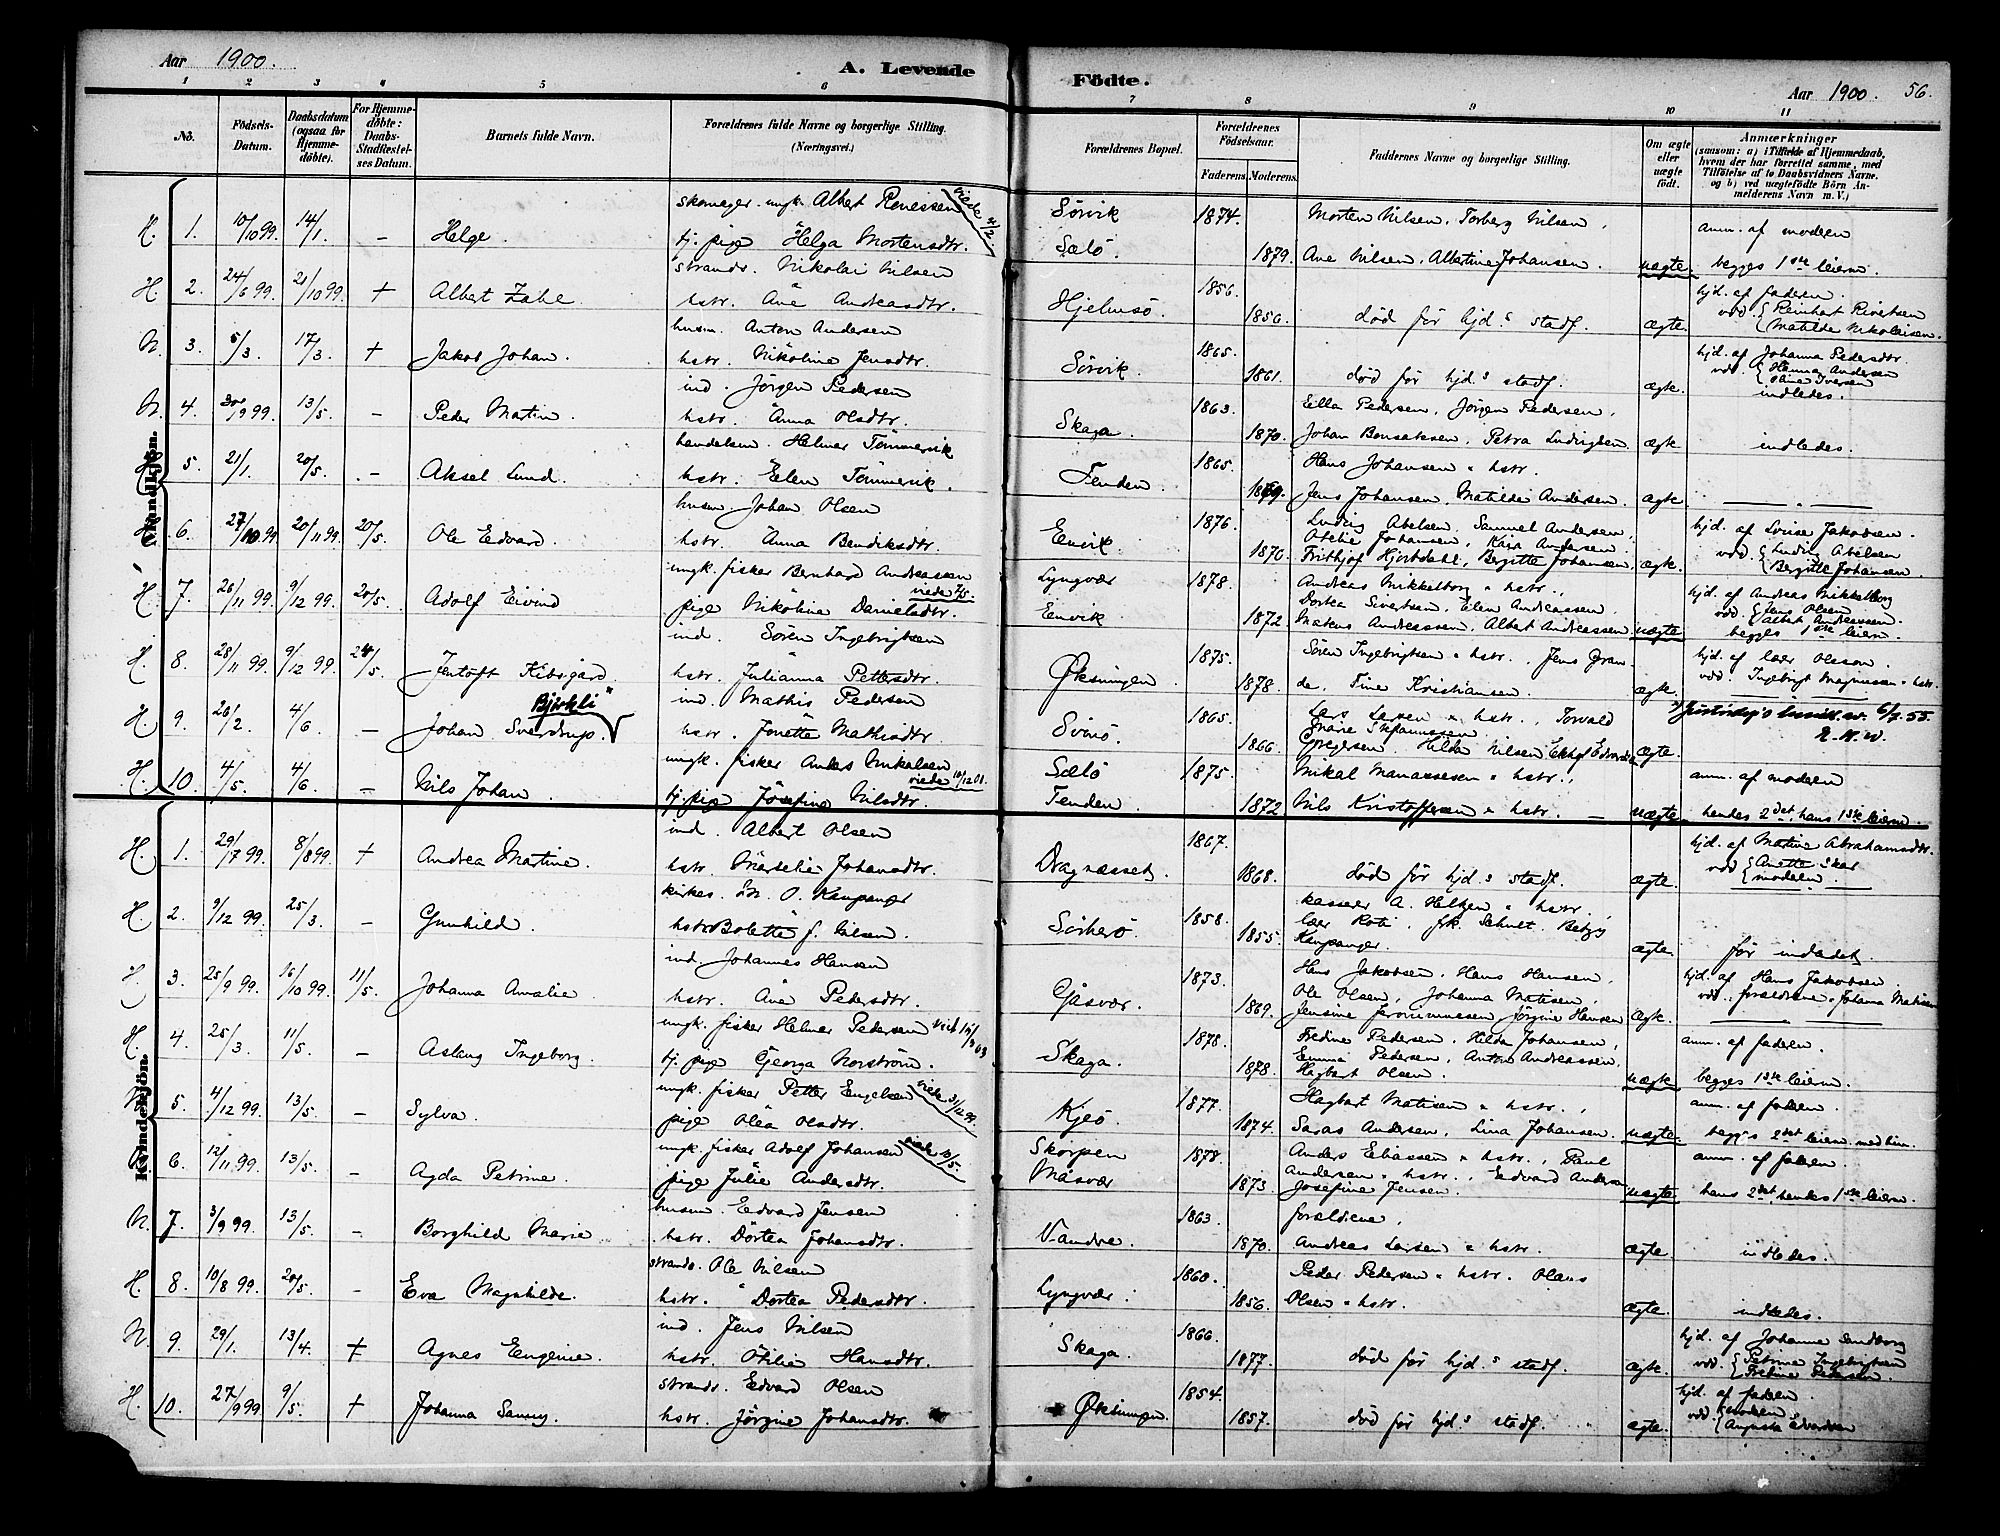 Aar 1900.
A. Levende Födte.
Aar 1900. 56.
1 2 3 4 5 6 7 8 9 10 11
No. Födsels-Datum. Daabsdatum (ogsaa for Hjemme-döbte). For Hjemme-döbte: Daabs-Stadfæstel-ses Datum. Barnets fulde Navn. Forældrenes fulde Navne og borgerlige Stilling. (Næringsvei.) Forældrenes Bopæl. Forældrenes Födselsaar. Faderens. Moderens. Faddernes Navne og borgerlige Stilling. Om ægte eller uægte födt. Anmærkninger (saasom: a) i Tilfælde af Hjemmedaab, hvem der har forrettet samme, med Tilföielse af to Daabsvidners Navne, og b) ved uægtefödte Börn An-melderens Navn m. V.)
Mandkjön.
skomager. ungk. Albert Renessen viede 4/2 Sörvik 1874. Morten Nilsen, Torberg Nilsen, anm. af moderen
H. 1. 10/10 99. 14/1. – Helge. tj. pige Helga Mortensdtr. Sælö 1879. Ane Nilsen, Albertine Johansen. uægte begges 1ste leierm.
strands. Nikolai Nilsen 1856. hjd. af faderen.
H. 2. 24/6 99. 21/10 99. + Albert Zahl hstr. Ane Andreasdtr. Hjelmsö 1856. död för hjd.s stadf. ægte. vdd. {Reinhart Sivertsen {Matilde Nikolaisen.
husm. Anton Andersen 1865. hjd. af Johanna Pedersdtr.
N. 3. 5/3 17/3. + Jakob Johan. hstr. Nikoline Jensdtr. Sörvik. 1861. död för hjd.s stadf. ægte. vdd. Andersen Iversen
ind. Jörgen Pedersen 1863. Pedersen, Jörgen Pedersen, indledes.
N. 4. 30/9 99. 13/5. – Peder Martin. hstr. Anna Olsdtr. Skaga. 1870. Johan Bonsaksen, Petra Ludvigsen ægte indledes.
handelsm. Helmer Tömmervik 1865. Hans Johansen & hstr.
5. 21/1. 20/5. – Aksel Lund. hstr. Elen Tömmervik. Tenden. 1869. Jens Johansen, Matilde Andersen. ægte
husm. Johan Olsen 1876. Ludvig Abelsen, Samuel Andersen, hjd. af Lovise Jakobsen.
6. 27/10 99. 20/11 99. 20/5. Ole Edvard. hstr. Anna Bendiksdtr. Envik. 1870. Otelie Johansen, Kaja Andersen. Frithjof Hjortdahl, Bergitte Johansen, ægte. vdd. {Ludvig Abelsen {Bergitte Johansen.
ungk. fisker Bernhard Andreassen viede 7/5. Lyngvær 1878. Andreas Mikkelborg & hstr., hjd. af Andreas Mikkelborg
H. 7. 26/11 99. 9/12 99. 20/5. Adolf Eivind pige Nikoline Danielsdtr. Envik. 1872 Dortea Sivertsen, Elen Andreassen. Markus Andreassen, Albert Andreassen uægte vdd. {Jens Olsen {Albert Andreassen. begges 1ste leierm.
ind. Sören Ingebrigtsen 1875. Sören Ingebrigtsen & hstr., Jens Gran- hjd. af lær. Olsson.
H. 8. 28/11 99. 9/12 99. 24/5. Jentoft Kibsgård. hstr. Julianna Pettersdtr. Øksningen 1878. de, Tine Kristiansen. ægte. vdd. Ingebrigt Magnussen & hstr.
Björkli ind. Mathis Pedersen 1865. Lars Larsen & hstr., Torvald
H. 9. 26/2. 4/6. – Johan Sverdrup. hstr. Jonette Mathisdtr. Svinö. 1866. Marie Stefanussen, Hilda Nilsen ægte. 6/7. 55.
ungk. fisker Anders Mikalsen viede 10/12 01. Sælö 1875. Mikal Manassesen & hstr., anm. af moderen
H. 10. 4/5. 4/6. – Nils Johan. tj. pige Josefine Nilsdtr. Tenden. 1872 Nils Kristoffersen & hstr. – uægte. hendes 2det, hans 1ste leierm.
Kvindekjön.
ind. Albert Olsen 1867. hjd. af Martine Abrahamsdtr.
H. 1. 29/7 99. 8/8 99. + Andrea Martine. hstr. Marselie Johansdtr. Dragnæsset. 1868. död för hjd.s stadf. ægte. vdd {Anette Skar {moderen.
kirkes. O. Kaupanger 1858. kasserer A. & hstr.,
H. 2. 9/12 99. 25/3. – Gunhild. hstr. Bolette f. Nilsen. Sörherö. 1855. lær. frk. Schult. Betzy Kaupanger. ægte. för indledet.
ind. Johannes Hansen 1873. Hans Jakobsen, Hans Hansen, hjd. af Hans Jakobsen
H. 3. 25/9 99. 16/10 99. 11/5. Johanna Amalie. hstr. Ane Pedersdtr. Gåsvær. 1869. Ole Olsen, Johanna Matisen, Jensine Jörgine Hansen ægte. vdd. forældrene & Johanna Matisen
ungk. fisker Helmer Pedersen 1878. Fredine Pedersen, Hilda Johansen, anm. af faderen.
H. 4. 25/3. 11/5. – Aslaug Ingeborg. tj. pige Georga Norström. Skaga. 1878. Emma Pedersen, Anton Andreassen, Hagbart Olsen. uægte begges 1ste leierm.
ungk. fisker Petter Engelsen viede 31/12 99. 1877. Hagbart Matisen & hstr., anm. af faderen.
5. 4/12 99. 13/5. – Sylva. pige Olea Olsdtr. Kjeö. 1874. Andersen, Lina Johansen. uægte. begges 2det leierm.
ungk. fisker Adolf Johansen Skorpen 1878. Anders Eliassen & hstr., Paul anm. af faderen.
6. 12/11 99. 13/5. – Agda Petrine. pige Julie Andersdtr. Måsvær 1873. Andersen & hstr., Edvard Andersen Josefine Jensen. uægte hans 2det hendes 1ste leierm.
husm. Edvard Jensen 1863. forældrene,
N. 7. 3/9 99. 13/5. – Borghild Marie hstr. Dortea Johansdtr. Vandve. 1870. Andreas Larsen & hstr. ægte. indledes.
strands. Ole Nilsen 1860. Peder Pedersen & hstr. Olaus
H. 8. 10/8 99. 20/5. – Eva Maghilde. hstr. Dortea Pedersdtr. Lyngvær. 1856. Olsen & hstr. ægte. indledes.
ind. Jens Nilsen 1866. hjd. af Johanne
N. 9. 29/1. 13/4. + Agnes Eugenie. hstr. Otilie Hansdtr. Skaga. 1877. död för hjd.s stadf. ægte. vdd. {Petrine Ingebrigtsen {Fredine Pedersen.
strands. Edvard Olsen 1854. hjd. af faderen.
H. 10. 27/9 99 9/5. + Johanna Sanny. hstr. Jörgine Johansdtr. Øksningen. 1857. död för hjd.s stadf. ægte. vdd. {moderen. {Augusta Edvardsen